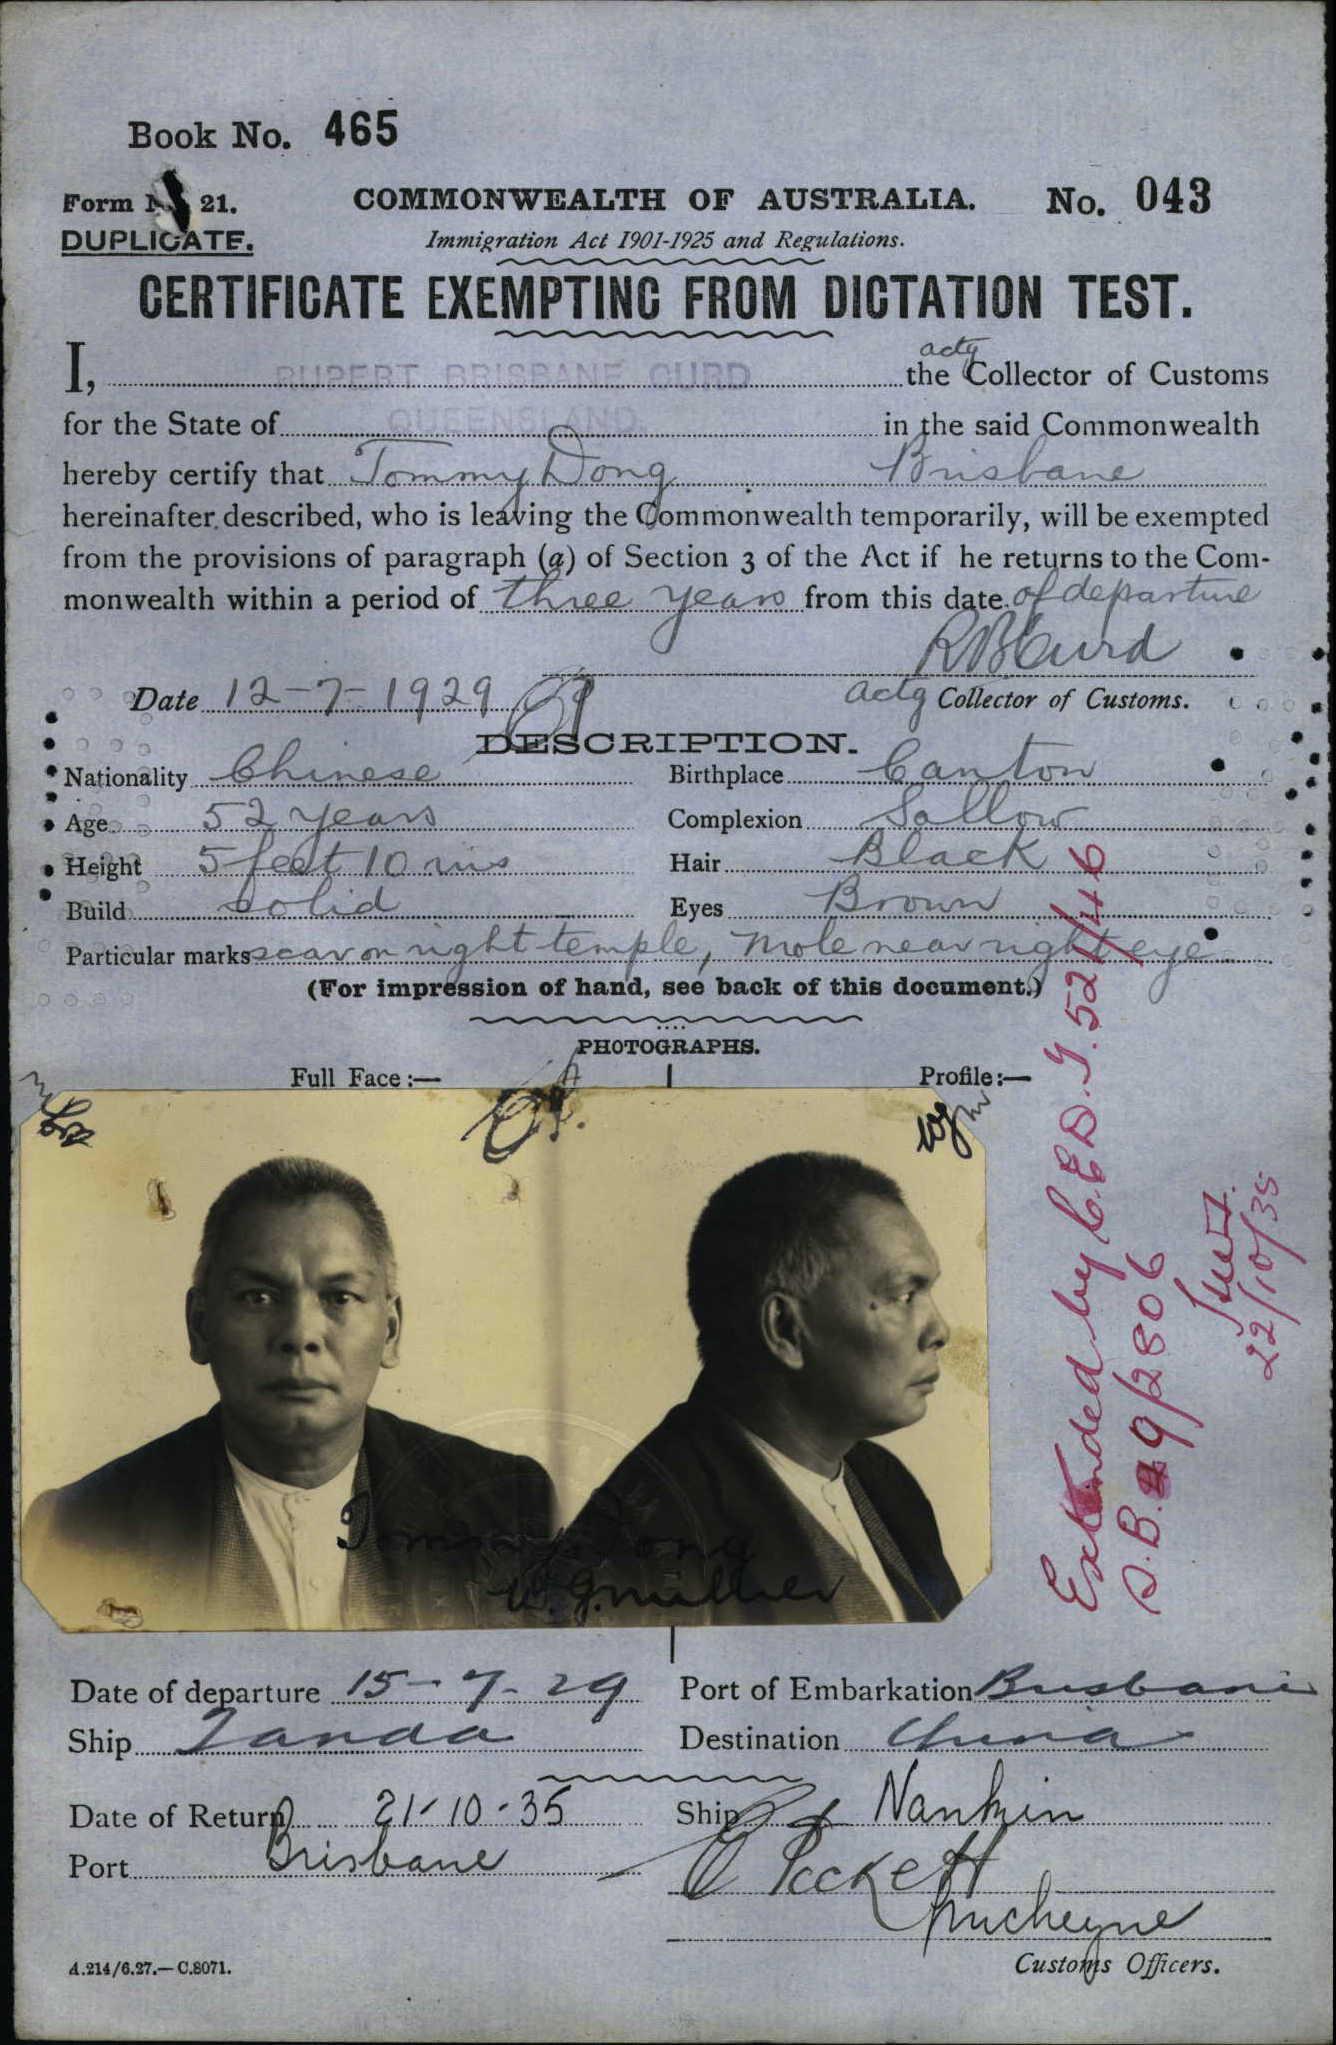 Book No. 465
Form No. 21. COMMONWEALTH OF AUSTRALIA. No. 043
DUPLICATE. Immigration Act 1901-1925 and Regulations.
CERTIFICATE EXEMPTING FROM DICTATION TEST.
I, RUPERT BRISBANE CURD the actg Collector of Customs
for the State of QUEENSLAND. in the said Commonwealth
hereby certify that Tommy Dong Brisbane
hereinafter described, who is leaving the Commonwealth temporarily, will be exempted
from the provisions of paragraph (a) of Section 3 of the Act if he returns to the Com-
monwealth within a period of three years from this date of departure
RBCurd
Date 12-7-1929 actg Collector of Customs.
DESCRIPTION.
Nationality Chinese Birthplace Canton
Age 52 years Complexion Sallow
Height 5 feet 10 ins Hair Black
Build solid Eyes Brown
Particular marks scar on right temple, mole near right eye
(For impression of hand, see back of this document.)
PHOTOGRAPHS.
Full Face:— Profile:—
Tommy Dong
Extended by C.E.D.T. 521/46
S.B. 29/2806
22/10/35
Date of departure 15-7-29 Port of Embarkation Brisbane
Ship Tanda Destination China
Date of Return 21-10-35 Ship Nankin
Port Brisbane
Customs Officers.
A.214/6.27.—C.8071.